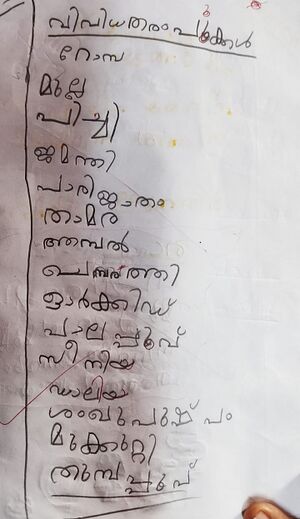 വിവിധതരം പൂക്കൾ
റോസ
മുല്ല
പിച്ചി
ജമന്തി
പാരിജാതം
താമര
ആമ്പൽ
ചെമ്പരത്തി
ഓർക്കിഡ്
പാലപ്പൂവ്
സീനിയ
ഡാലിയ
ശംഖുപുഷ്പം
മുക്കുറ്റി
തുമ്പപ്പൂവ്